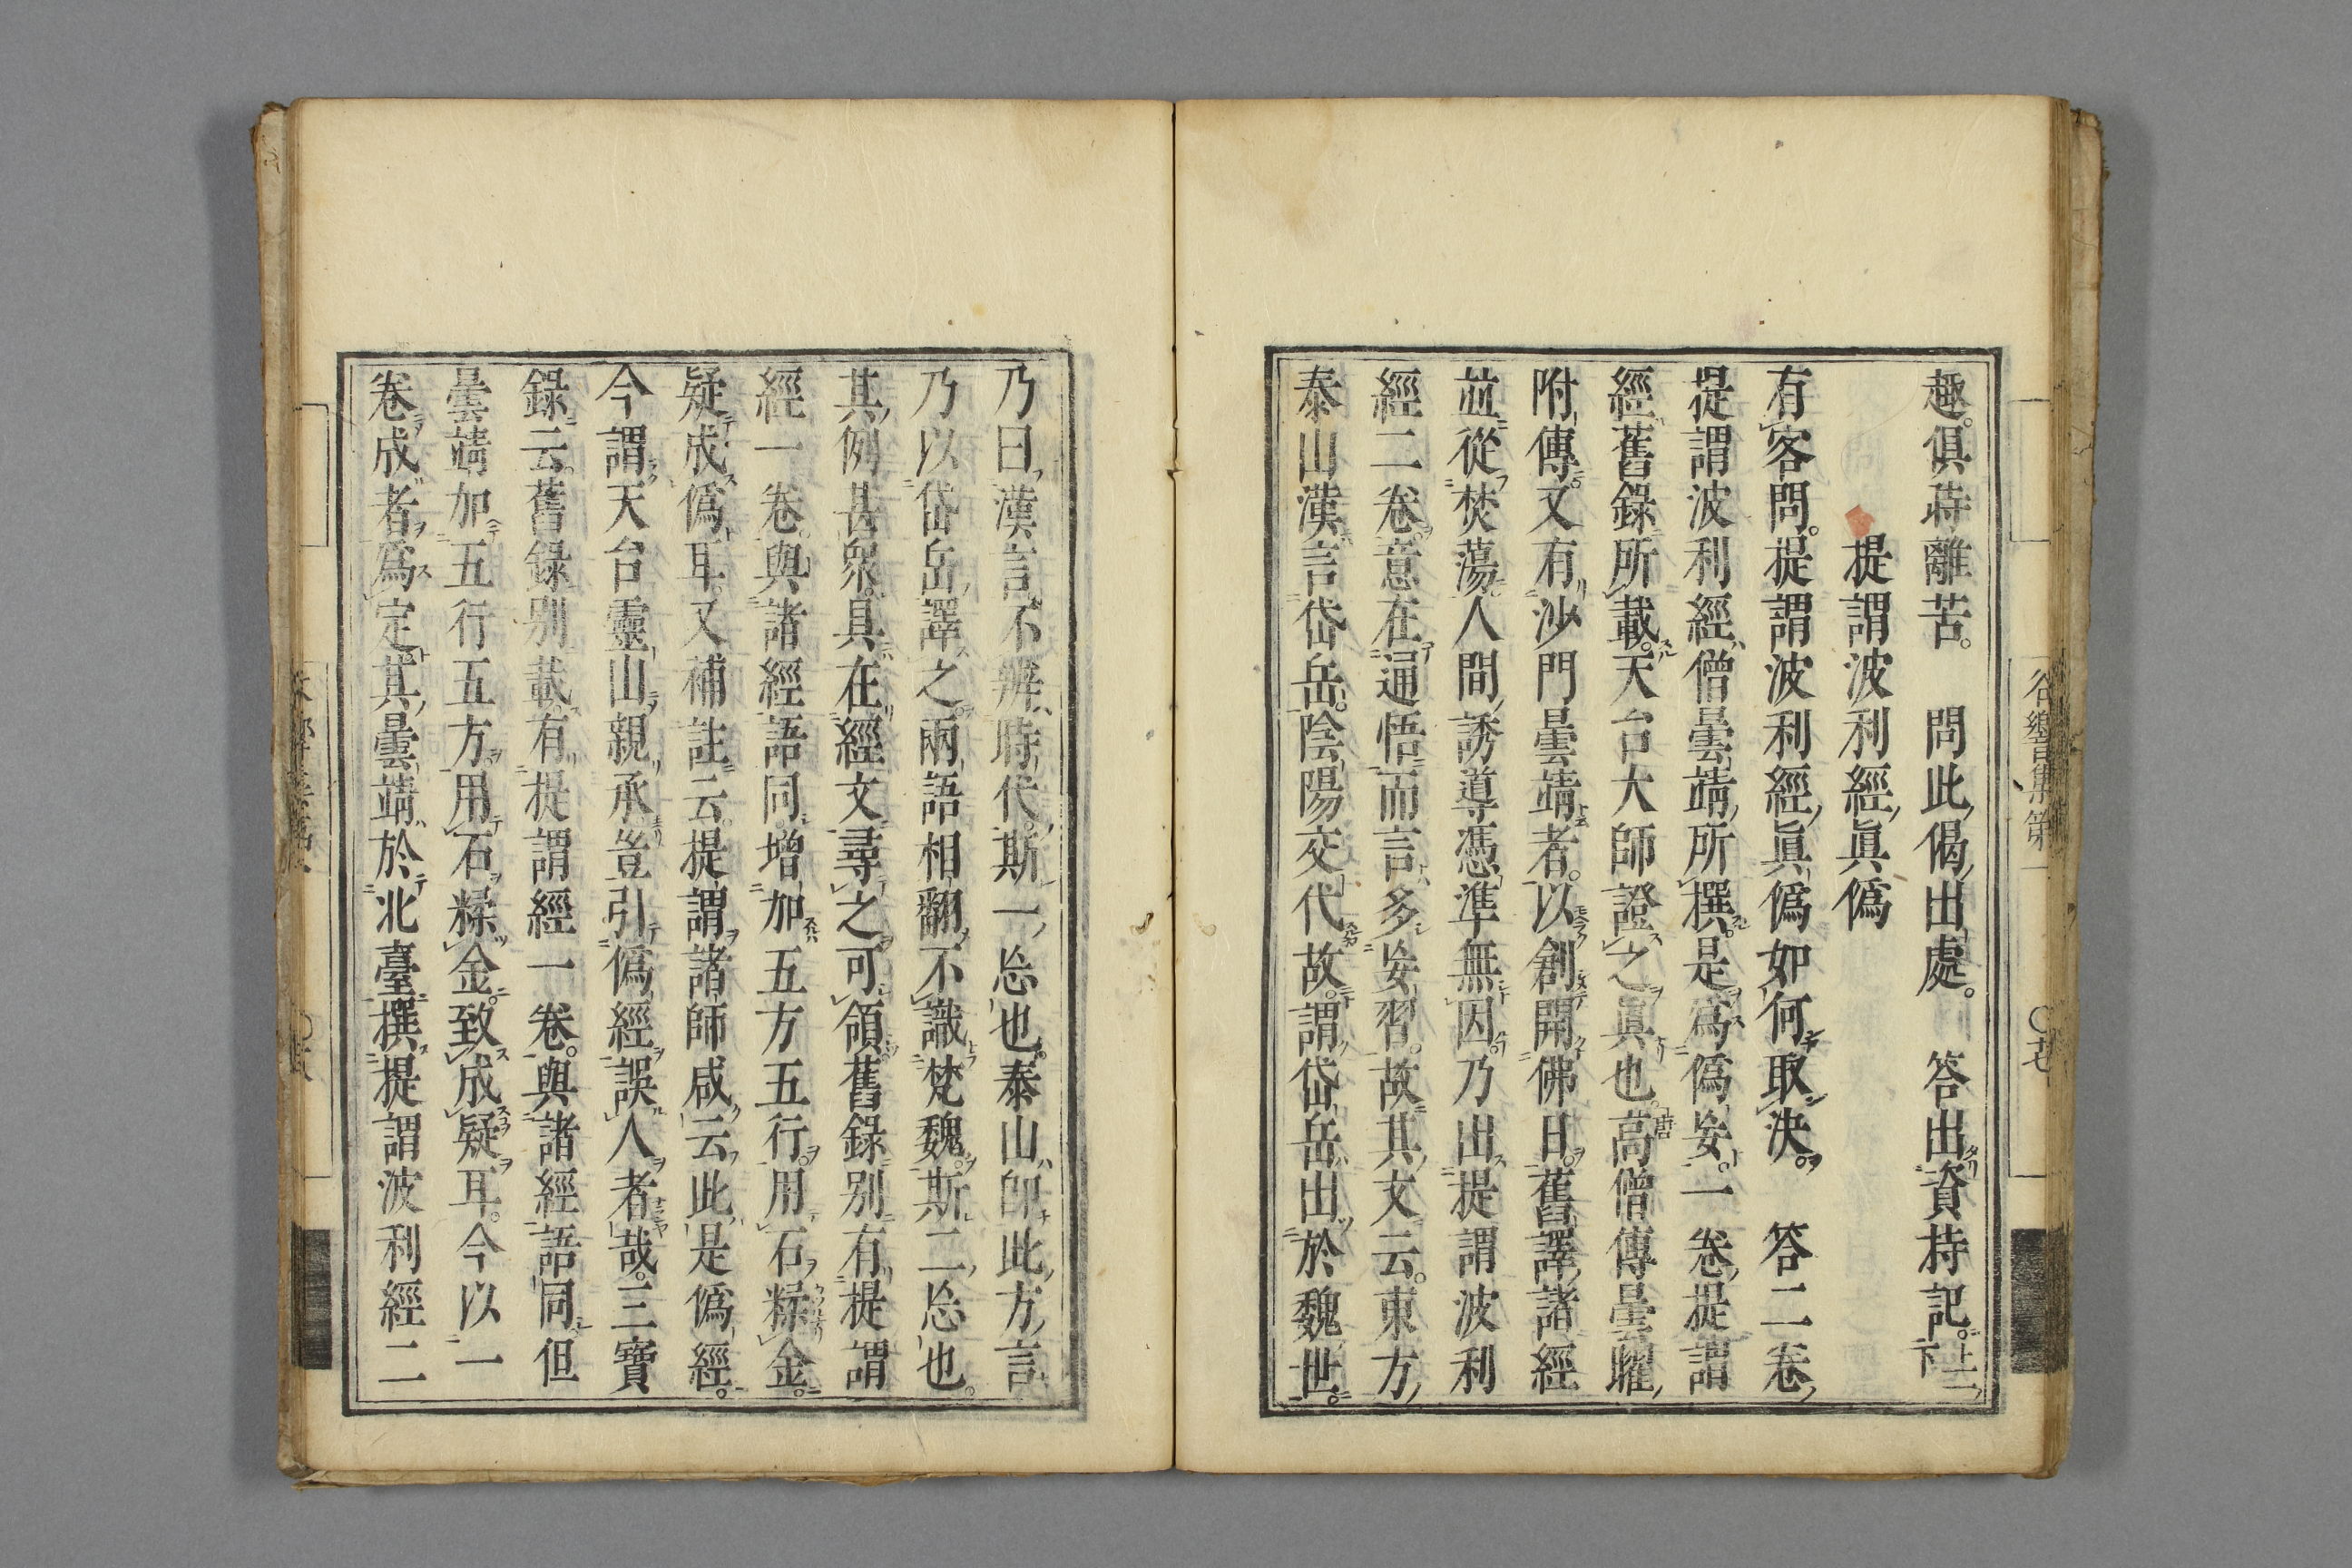 趣。俱蒔離苦。　問此偈出處。　答出資持記。上一下
提謂波利經眞僞
有客問。提謂波利經眞僞如何取決。　答二卷
提謂波利經僧曇靖所撰。是爲僞妄。一卷提謂
經舊錄所載。天台大師證之眞也。高僧傳曇曜
附傳文有沙門曇靖者。以創開佛日。舊譯諸經
並從焚蕩人間誘導憑準無因。乃出提謂波利
經二卷。意在通悟而言多妄習。故其文云。東方
泰山漢言岱岳。陰陽交代故。謂岱岳出於魏世。
乃曰漢言不辨時代。斯一㤀也。泰山卽此方言
乃以岱岳譯之。兩語相翻不識梵魏。斯二㤀也。
其例甚衆。具在經文尋之可領。舊錄別有提謂
經一卷與諸經語同。增加五方五行。用石糅金。
疑成僞耳。又補註云。提謂諸師咸云此是僞經。
今謂天台靈山親承豈引僞經誤人者哉。三寶
錄云。舊錄別載有提謂經一卷。與諸經語同。但
曇靖加五行五方。用石糅金。致成疑耳。今以一
卷成者爲定。其曇靖於北臺撰提謂波利經二
谷響集第一